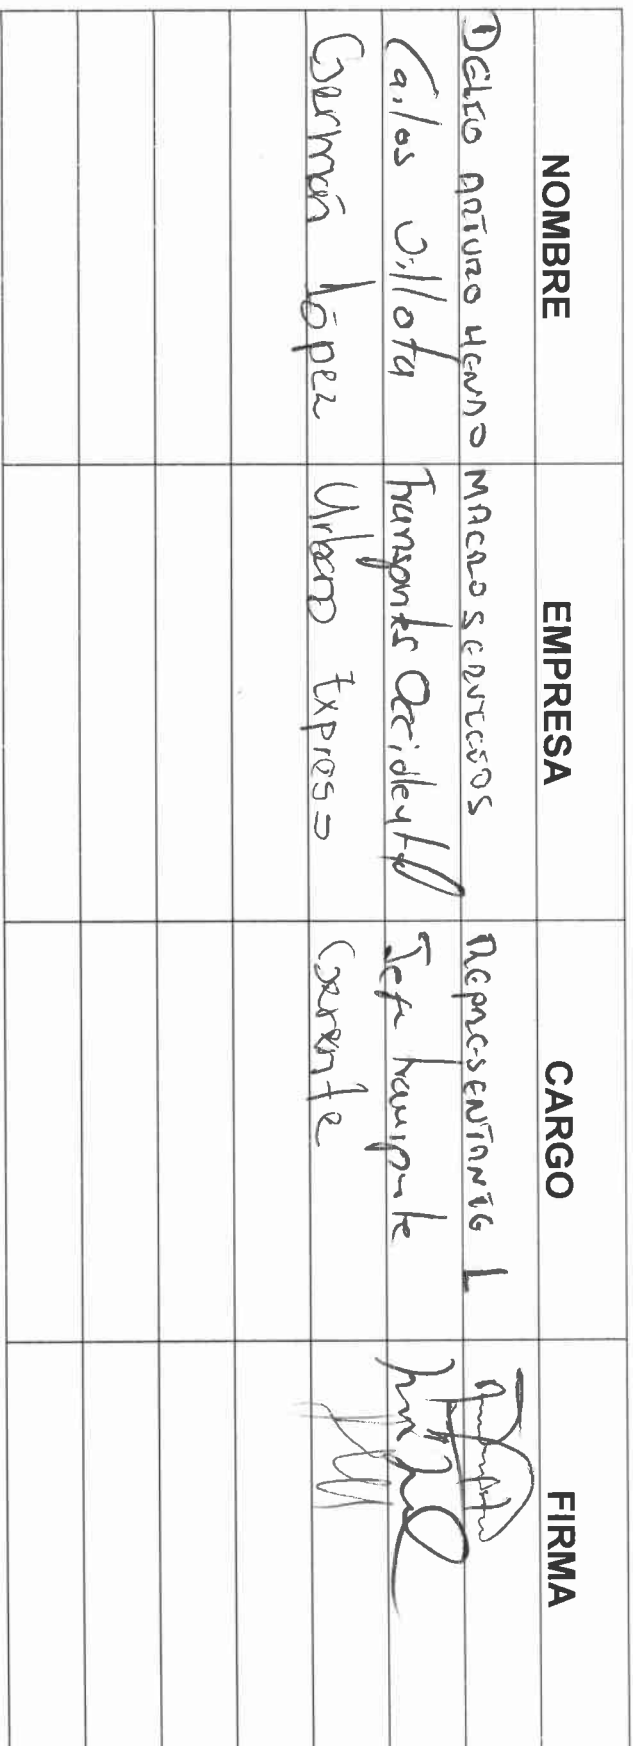 NOMBRE EMPRESA CARGO FIRMA
DELIO ARTURO HENAO MACROSERVICIOS REPRESENTANTE L
Carlos Villota Transportes Occidental Jefe transporte
Germán López Urbano Expreso Gerente